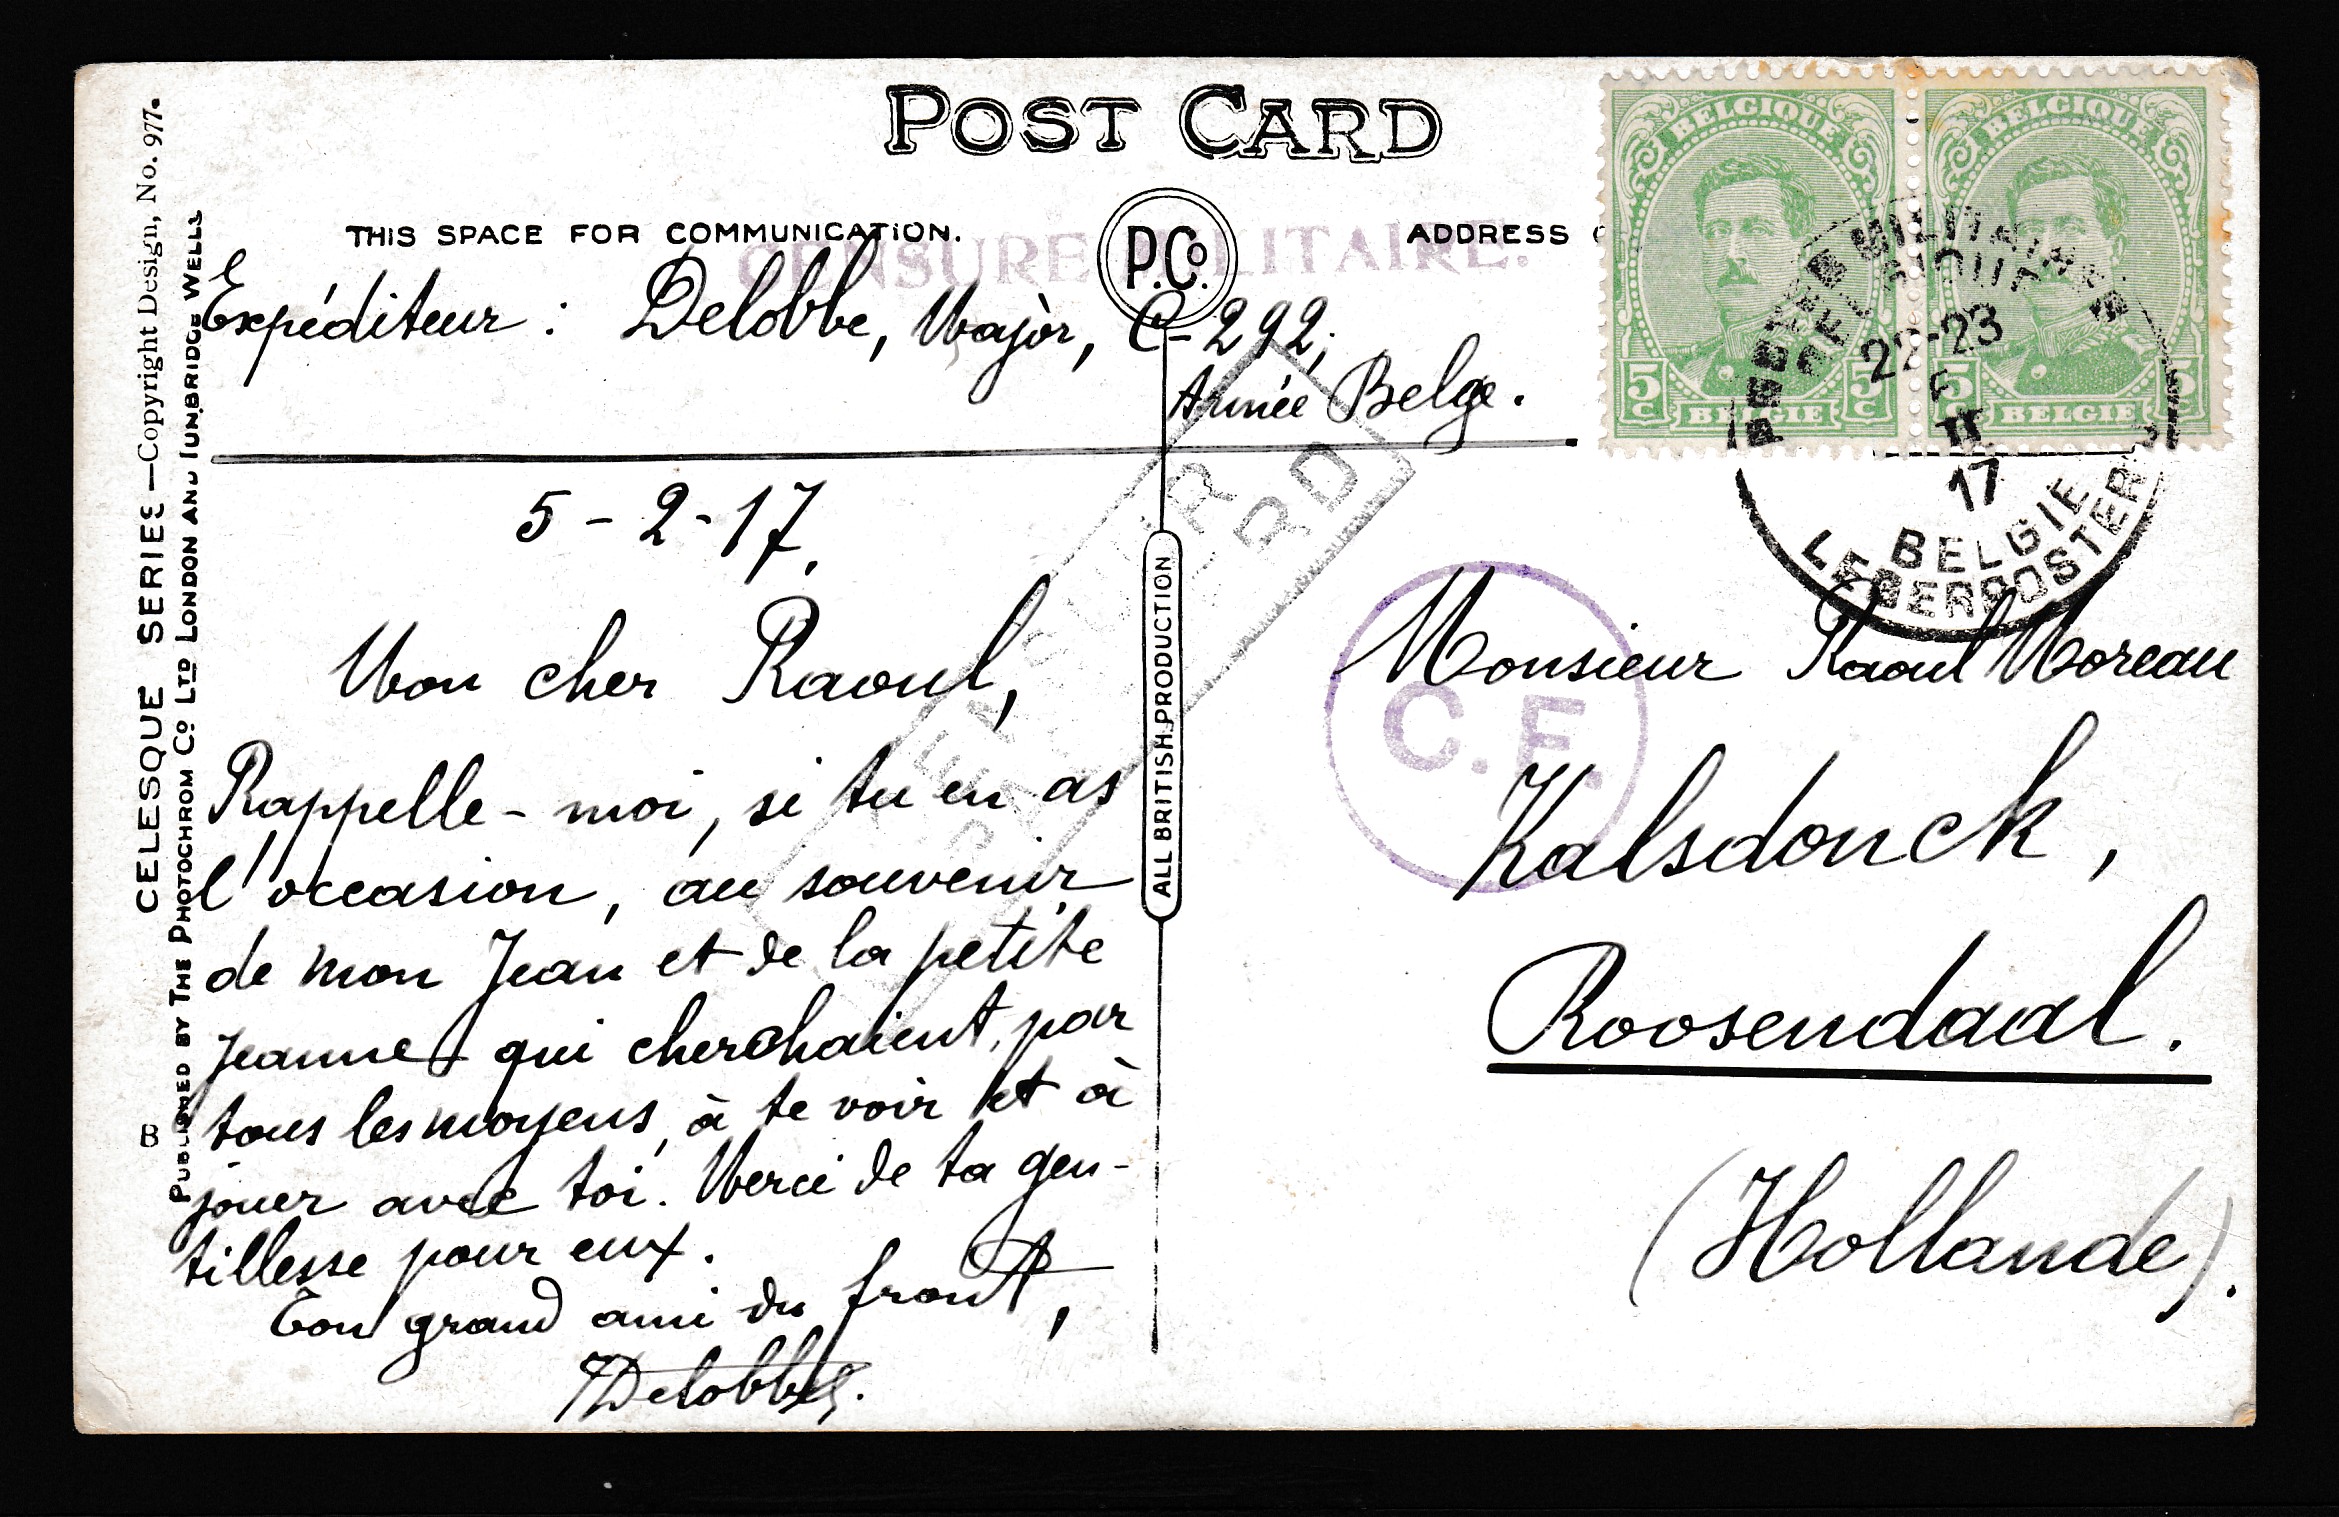 POST CARD
THIS SPACE FOR COMMUNICATION.
ADDRESS
P.Co.
CENSURE MILITAIRE.
CELESQUE SERIES—Copyright Design, No. 977.
PUBLISHED BY THE PHOTOCHROM Co LTD LONDON AND TUNBRIDGE WELLS
B
ALL BRITISH PRODUCTION
Expéditeur : Delobbe, Major, C-292,
Armée Belge.
5-2-17.
Mon cher Raoul,
Rappelle-moi, si tu en as
l'occasion, au souvenir
de mon Jean et de la petite
Jeanne qui cherchaient, par
tous les moyens, à te voir et à
jouer avec toi. Merci de ta gen-
tillesse pour eux.
Ton grand ami du front,
Delobbe.
BELGIQUE
5c 5c
BELGIE
BELGIQUE
5c 5c
BELGIE
POSTES MILITAIRES
BELGIQUE
22-23
5
II
17
BELGIE
LEGERPOSTERIJ
C.F.
Monsieur Raoul Moreau
Kalsdonck,
Roosendaal.
(Hollande).